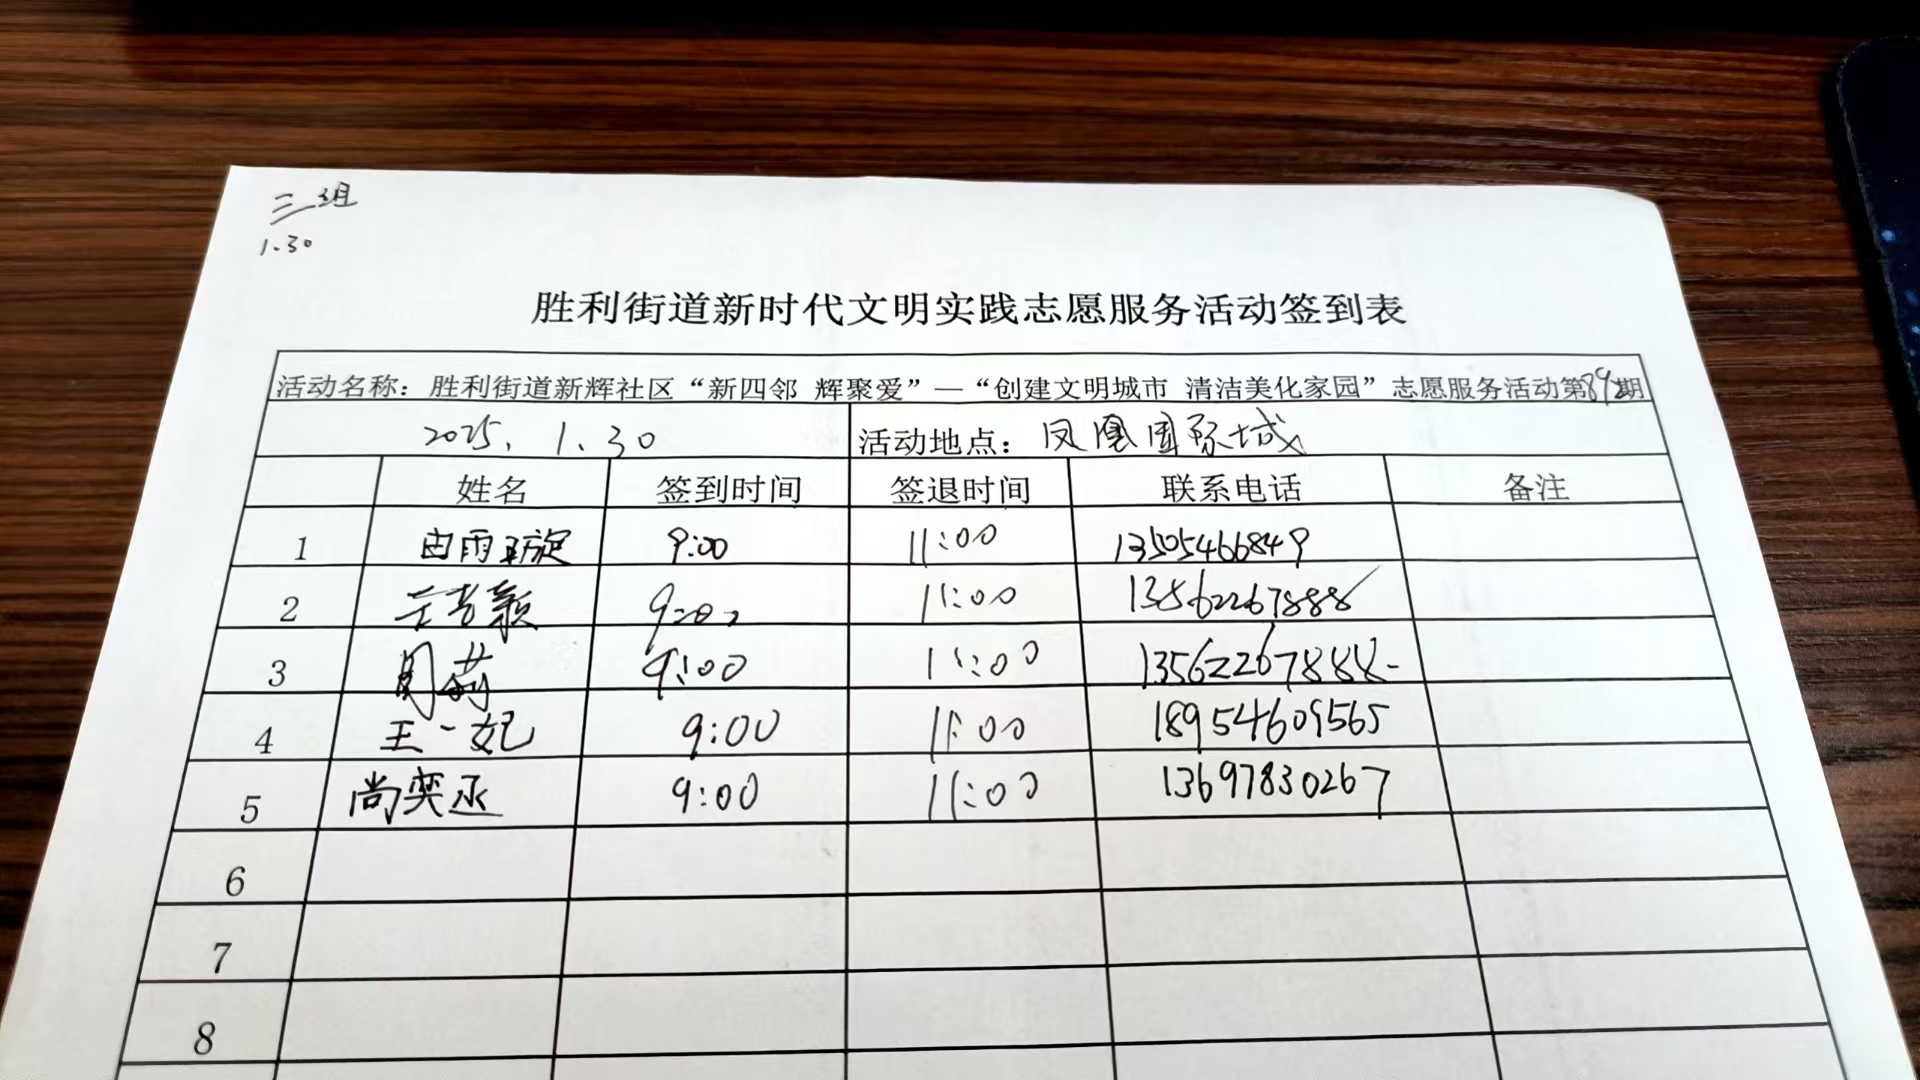 三组
1.30
胜利街道新时代文明实践志愿服务活动签到表
活动名称：胜利街道新辉社区“新四邻 辉聚爱”—“创建文明城市 清洁美化家园”志愿服务活动第 期
2025. 1.30 活动地点：凤凰国际城
姓名 签到时间 签退时间 联系电话 备注
1 由雨璇 9:00 11:00 13505466849
2 9:00 11:00 13562267888
3 周莉 9:00 11:00 13562267888
4 王一妃 9:00 11:00 18954609565
5 尚奕丞 9:00 11:00 13697830267
6
7
8